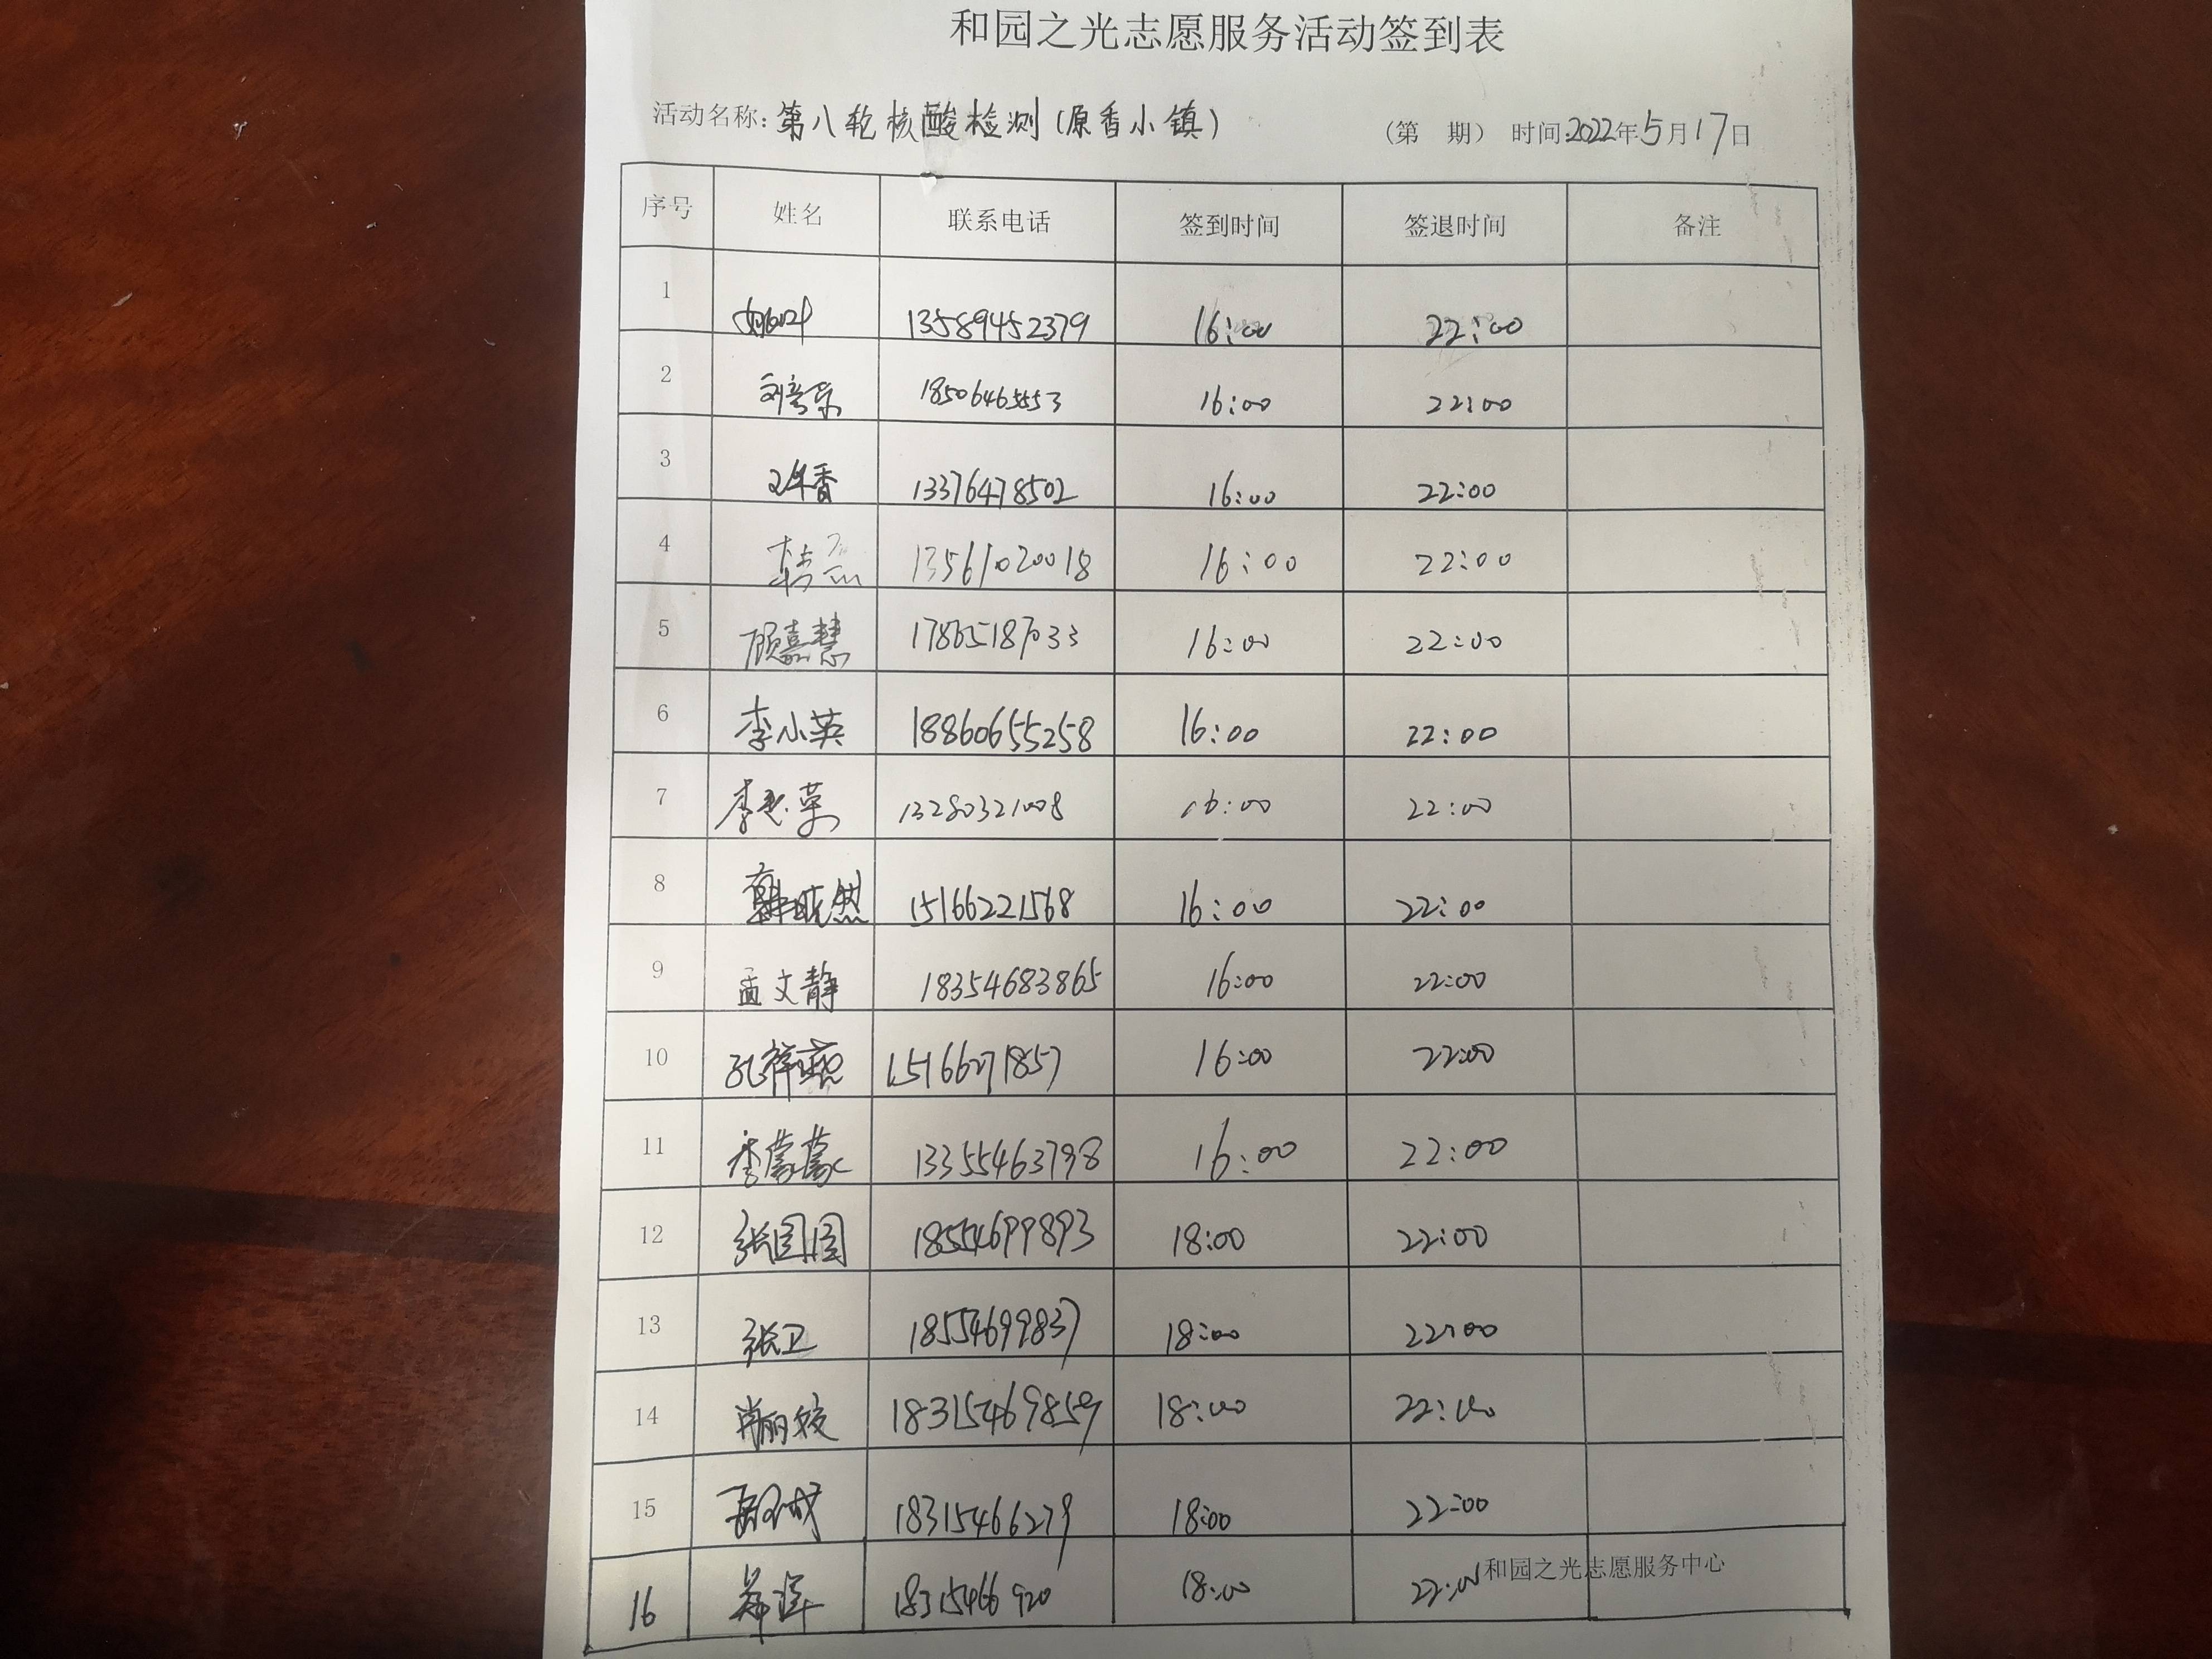 和园之光志愿服务活动签到表
活动名称: 第八轮核酸检测(原香小镇) (第 期) 时间:2022年5月17日
序号 姓名 联系电话 签到时间 签退时间 备注
1 13589452379 16:00 22:00
2 18506465553 16:00 22:00
3 13376478502 16:00 22:00
4 13561020018 16:00 22:00
5 顾嘉慧 17865187033 16:00 22:00
6 李小英 18860655258 16:00 22:00
7 13280321008 16:00 22:00
8 韩晓然 15166221568 16:00 22:00
9 孟文静 18354683865 16:00 22:00
10 15166271857 16:00 22:00
11 李蒙蒙 13355463798 16:00 22:00
12 张圆圆 18554699893 18:00 22:00
13 张卫 18554699837 18:00 22:00
14 肖丽姣 18315469859 18:00 22:00
15 18315466279 18:00 22:00
16 18315466920 18:00 22:00
和园之光志愿服务中心